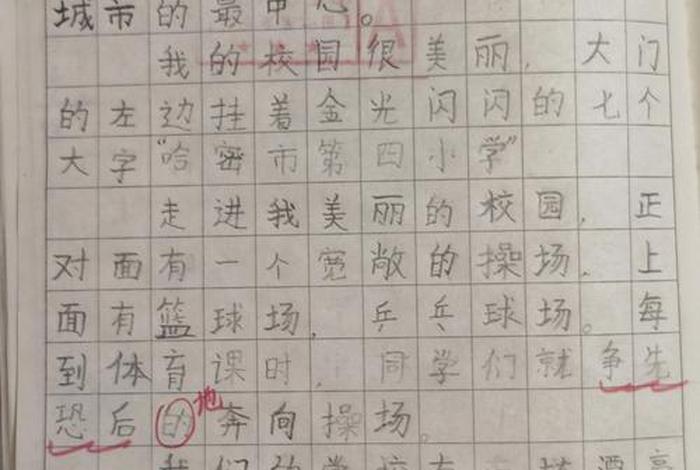 城市的最中心。
我的校园很美丽，大门
的左边挂着金光闪闪的七个
大字“哈密市第四小学”
走进我美丽的校园，正
对面有一个宽敞的操场，上
面有篮球场，乒乓球场。每
到体育课时，同学们就争先
恐后的地奔向操场。
我们的学校有